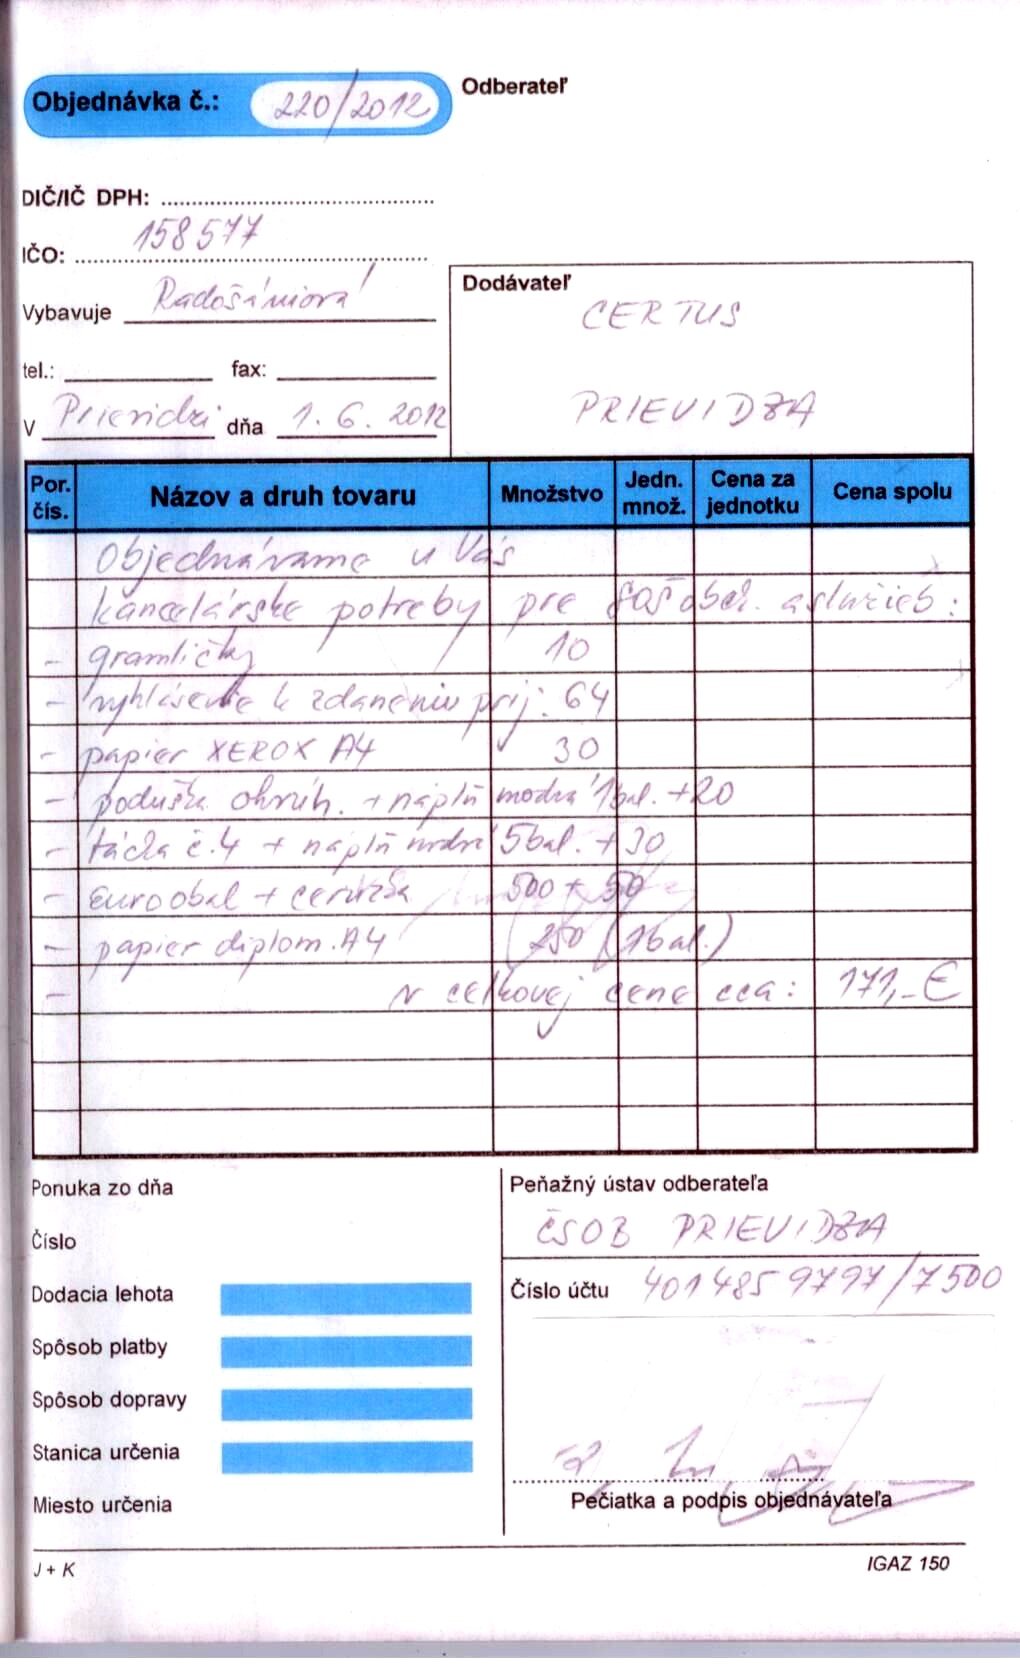 Objednávka č.: 220/2012
Odberateľ
DIČ/IČ DPH:
IČO: 158577
Vybavuje Radošániová
tel.: fax:
V Prievidzi dňa 1. 6. 2012
Dodávateľ
CERTUS
PRIEVIDZA
Por. čís. Názov a druh tovaru Množstvo Jedn. množ. Cena za jednotku Cena spolu
Objednávame u Vás
kancelárske potreby pre SOŠ obch. a služieb:
- gramličky 10
- vyhlásenie k zdaneniu príj. 64
- papier XEROX A4 30
- poduška okrúh. + náplň modrá 1bal. + 20
- tácka č.4 + náplň modrá 5bal. + 30
- euroobal + ceruzka 500 + 50
- papier diplom. A4 250 (1bal.)
- v celkovej cene cca: 171,- €
Ponuka zo dňa
Číslo
Dodacia lehota
Spôsob platby
Spôsob dopravy
Stanica určenia
Miesto určenia
Peňažný ústav odberateľa
ČSOB PRIEVIDZA
Číslo účtu 401485 9797/7500
Pečiatka a podpis objednávateľa
J + K
IGAZ 150